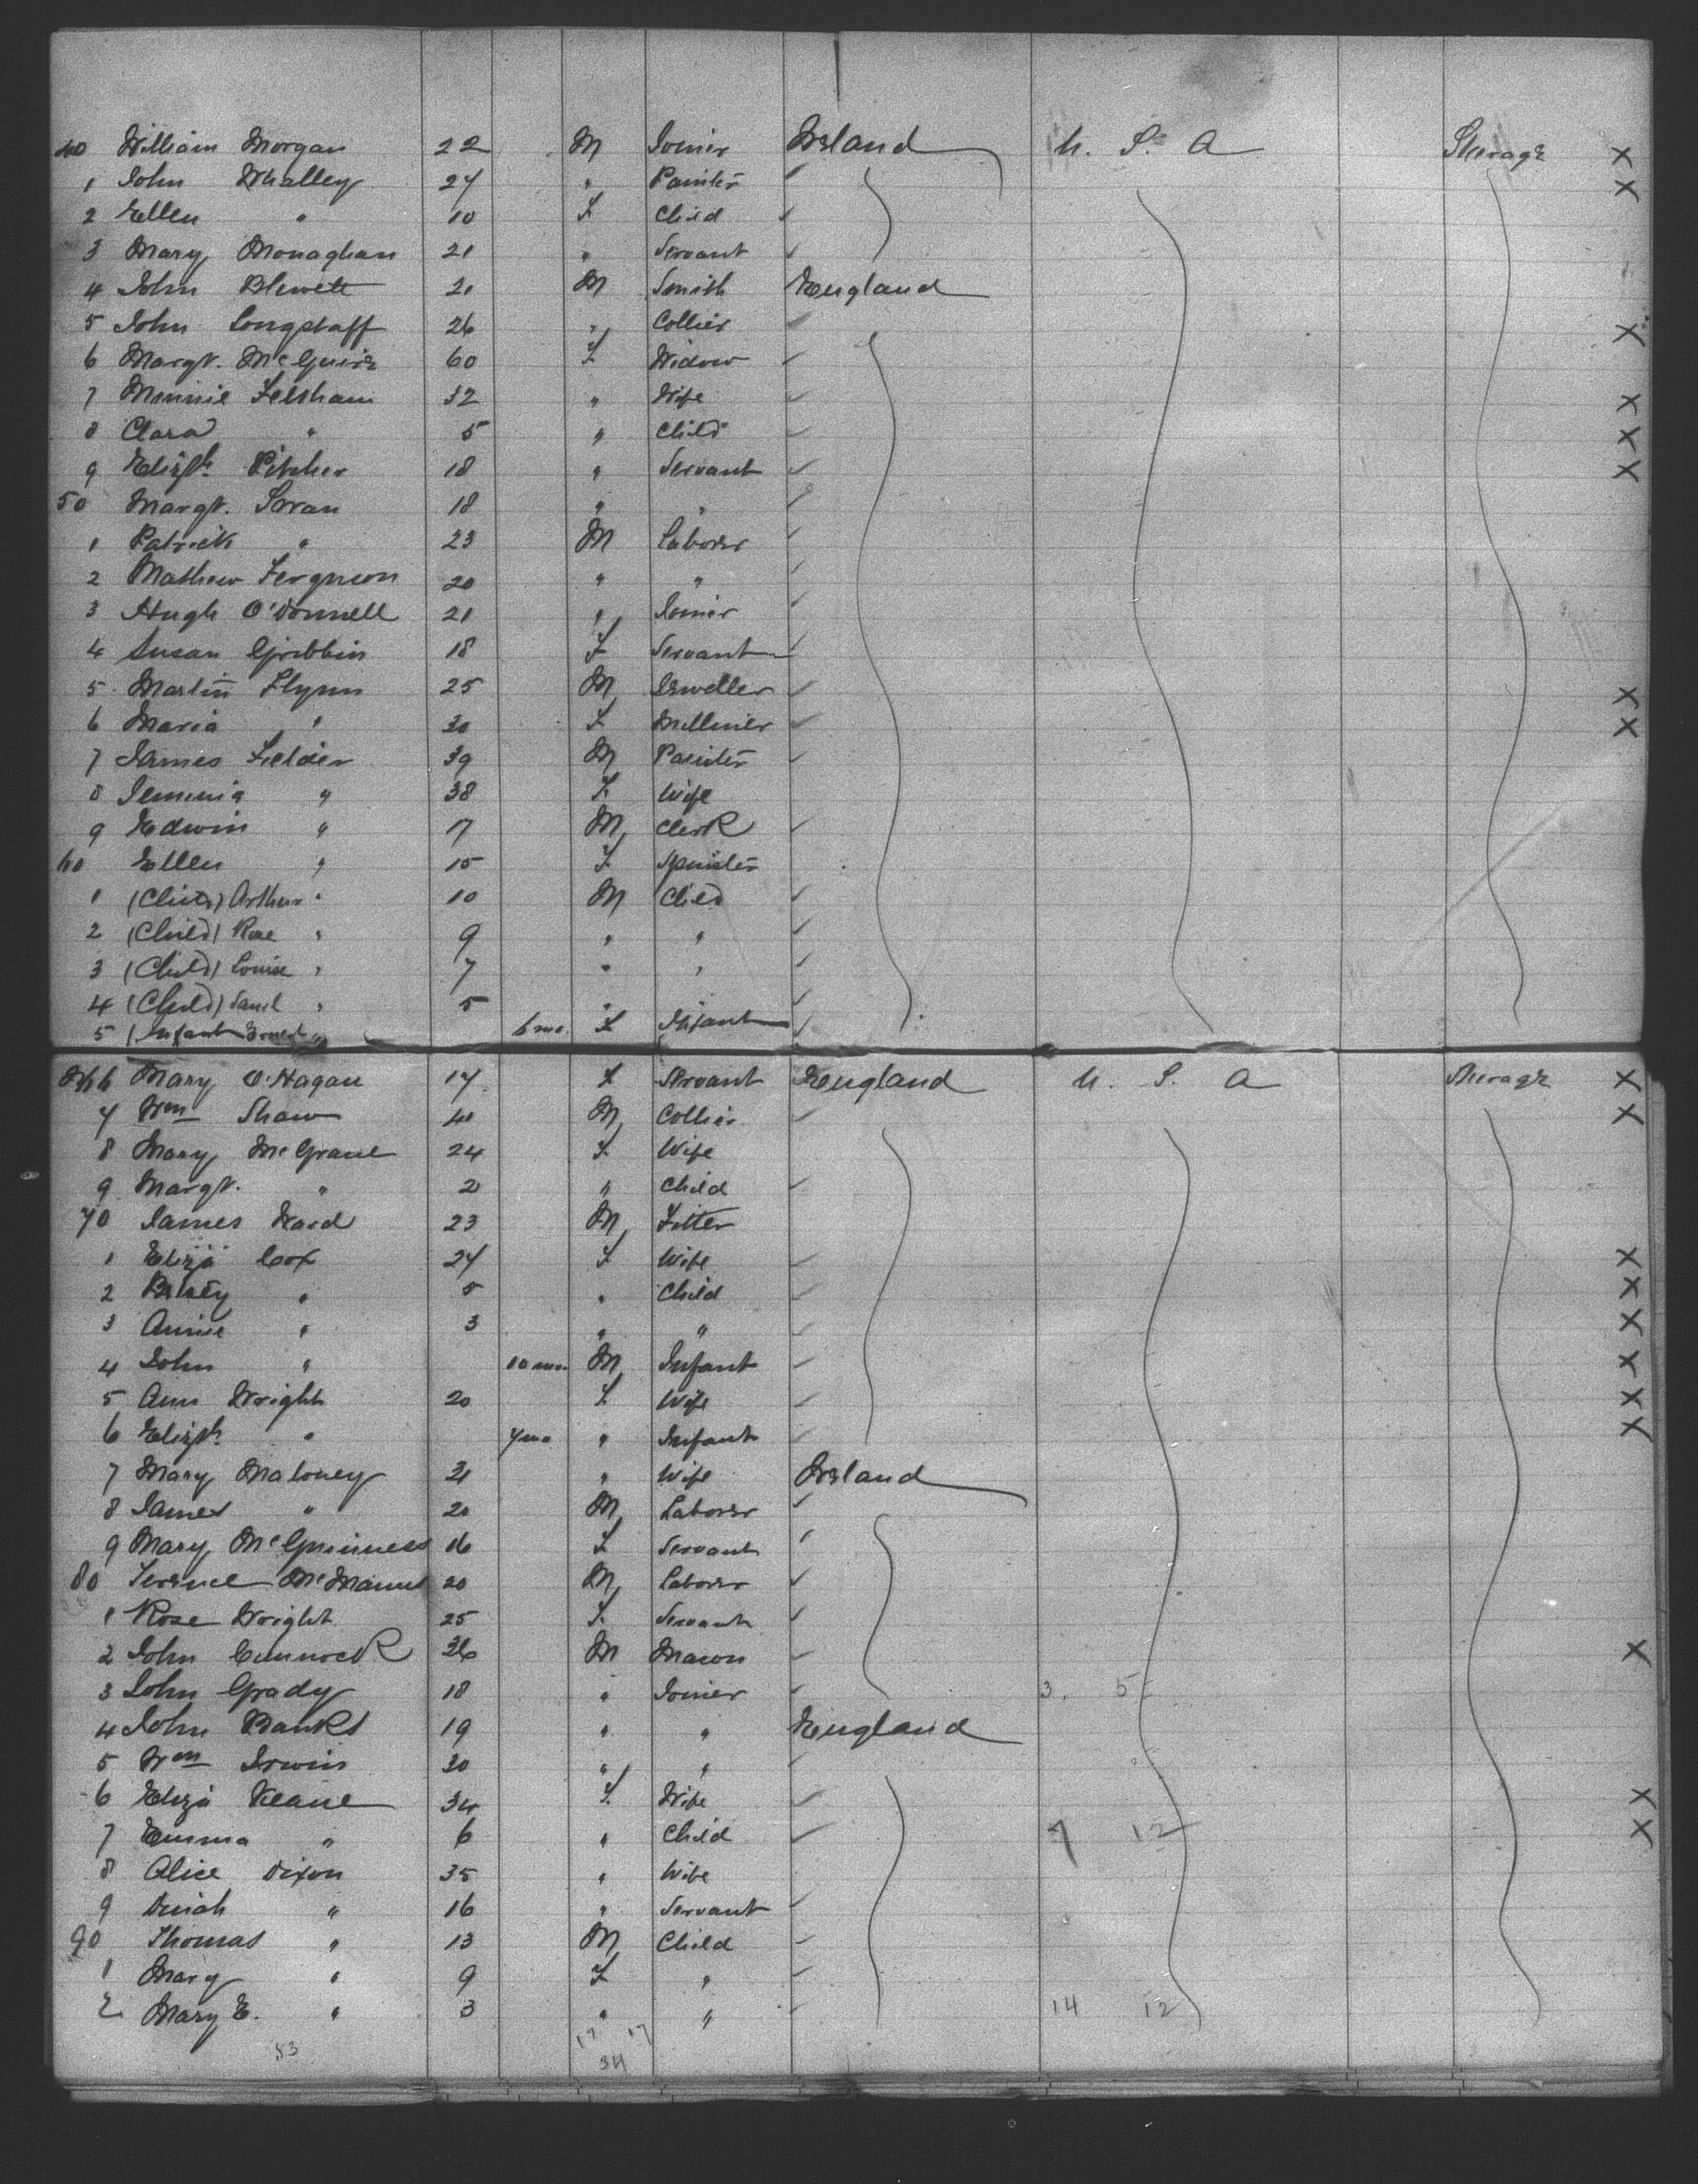 40 William Morgan 22 M Joiner Ireland U. S. A Steerage X
1 John Whalley 27 " Painter X
2 Ellen " 10 F Child
3 Mary Monaghan 21 " Servant
4 John Blewett 21 M Smith England
5 John Longstaff 26 " Collier X
6 Margt. McGuire 60 F Widow
7 Minnie Felsham 32 " Wife X
8 Clara " 5 " Child X
9 Elizth. Pitcher 18 " Servant X
50 Margt. Swan 18 " "
1 Patrick " 23 M Laborer
2 Mathew Ferguson 20 " "
3 Hugh O'Donnell 21 " Joiner
4 Susan Gribbin 18 F Servant
5 Martin Flynn 25 M Jeweller X
6 Maria " 30 F Milliner X
7 James Fielder 39 M Painter
8 Jemima " 38 F Wife
9 Edwin " 17 M Clerk
60 Ellen " 15 F Spinster
1 (Child) Arthur " 10 M Child
2 (Child) Rose " 9 " "
3 (Child) Louise " 7 " "
4 (Child) Saml " 5 "
5 (Infant Ernest " 6 mo. F Infant
66 Mary O'Hagan 17 F Servant England U. S. A Steerage X
7 Wm Shaw 41 M Collier X
8 Mary McGrane 24 F Wife
9 Margt. " 2 " Child
70 James Ward 23 M Fitter
1 Eliza Cox 27 F Wife X
2 Betsey " 5 " Child X
3 Annie " 3 " " X
4 John " 10 mo. M Infant X
5 Ann Wright 20 F Wife X
6 Elizth. " 7 mo " Infant X
7 Mary Maloney 21 " Wife Ireland
8 James " 20 M Laborer
9 Mary McGuinness 16 F Servant
80 Terence McManus 20 M Laborer
1 Rose Wright 25 F Servant
2 John Cunnock 36 M Mason X
3 John Grady 18 " Joiner 3. 5
4 John Banks 19 " " England
5 Wm Irwin 30 " "
6 Eliza Keane 34 F Wife X
7 Emma " 6 " Child 7 12 X
8 Alice Dixon 35 " Wife
9 Dinah " 16 " Servant
90 Thomas " 13 M Child
1 Mary " 9 F "
2 Mary E. " 3 " " 14 12
53 17 17
34